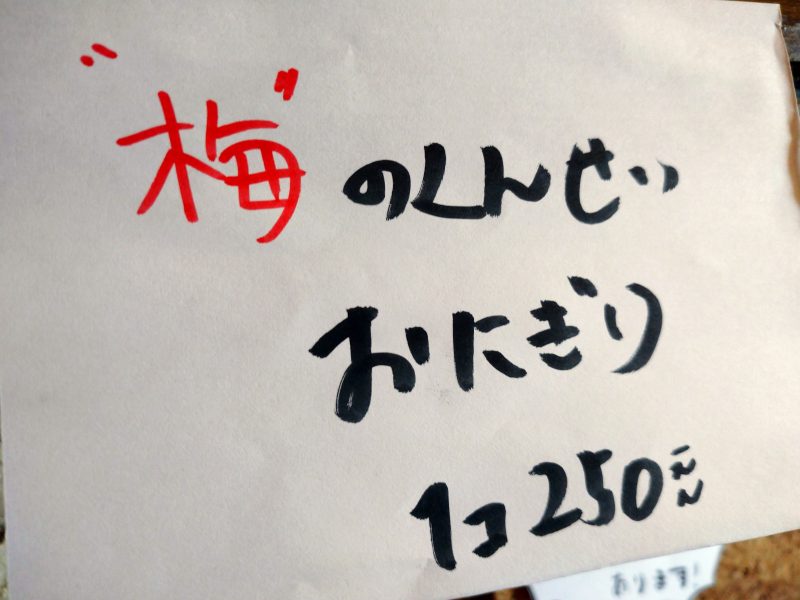 "梅"のくんせい
おにぎり
1コ250えん
あります!